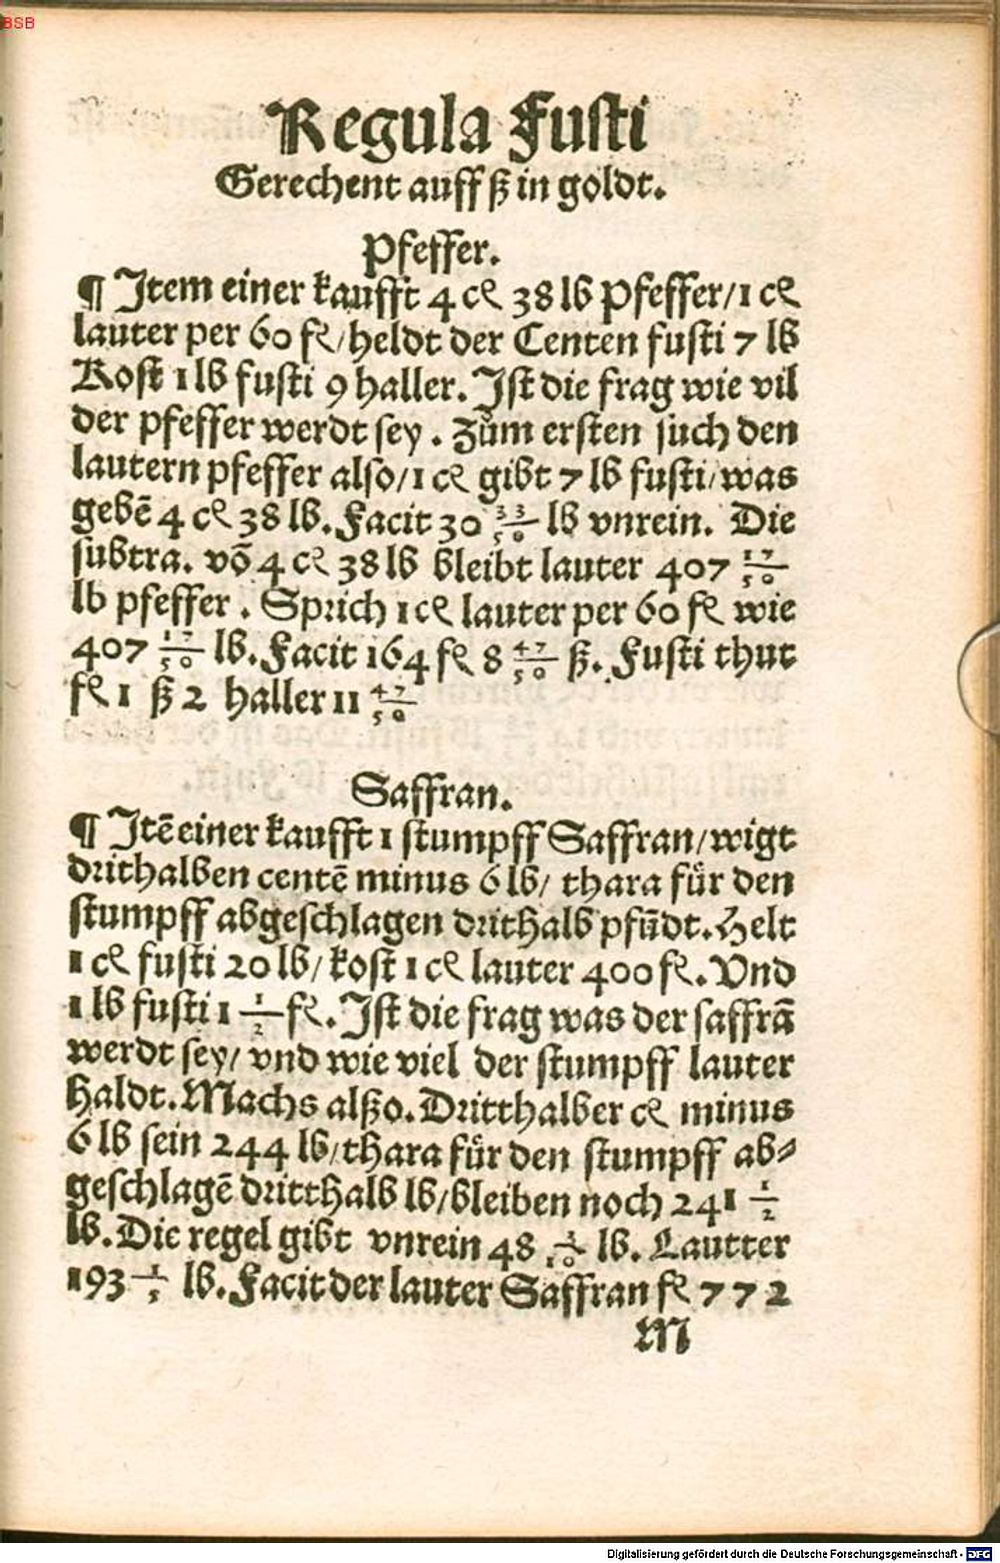 BSB
Regula Fusti
Gerechent auff ß in goldt.
Pfeffer.
¶ Item einer kaufft 4 cꝭ 38 lb Pfeffer/1 cꝭ
lauter per 60 fꝭ/heldt der Centen fusti 7 lb
Kost 1 lb fusti 9 haller. Ist die frag wie vil
der pfeffer werdt sey. Zům ersten such den
lautern pfeffer also/1 cꝭ gibt 7 lb fusti/was
gebē 4 cꝭ 38 lb. Facit 30 33/50 lb vnrein. Die
subtra. võ 4 cꝭ 38 lb bleibt lauter 407 17/50
lb pfeffer. Sprich 1 cꝭ lauter per 60 fꝭ wie
407 17/50 lb. Facit 164 fꝭ 8 47/50 ß. Fusti thut
fꝭ 1 ß 2 haller 11 47/50
Saffran.
¶ Itē einer kaufft 1 stumpff Saffran/wigt
drithalben centē minus 6 lb/ thara für den
stumpff abgeschlagen drithalb pfūdt. Helt
1 cꝭ fusti 20 lb/kost 1 cꝭ lauter 400 fꝭ. Vnd
1 lb fusti 1 1/2 fꝭ. Ist die frag was der saffrā
werdt sey/ vnd wie viel der stumpff lauter
haldt. Machs alßo. Dritthalber cꝭ minus
6 lb sein 244 lb/thara für den stumpff ab⸗
geschlagē dritthalb lb/bleiben noch 241 1/2
lb. Die regel gibt vnrein 48 3/10 lb. Lautter
193 1/5 lb. Facit der lauter Saffran fꝭ 772
M
Digitalisierung gefördert durch die Deutsche Forschungsgemeinschaft - DFG